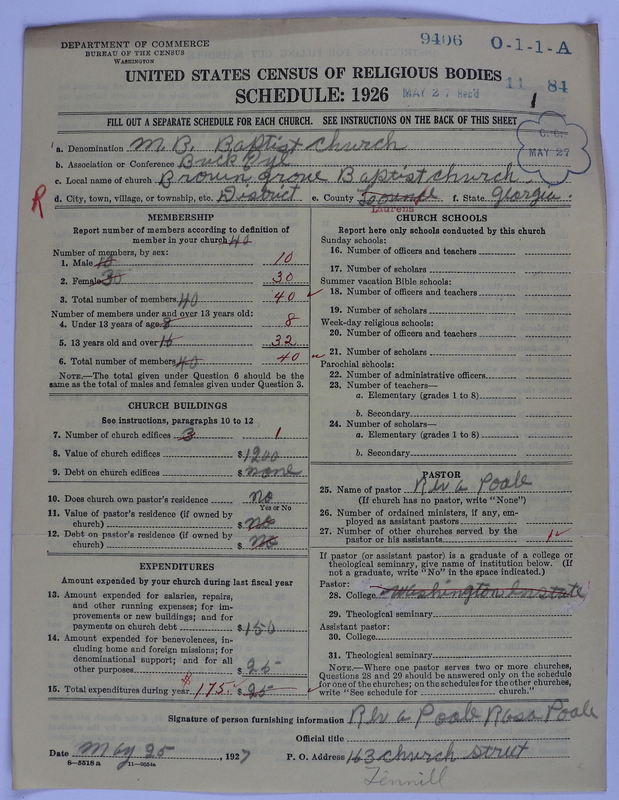 DEPARTMENT OF COMMERCE
BUREAU OF THE CENSUS
WASHINGTON
9406 0-1-1-A
UNITED STATES CENSUS OF RELIGIOUS BODIES
SCHEDULE: 1926
MAY 27 Rec'd
11 84
1
FILL OUT A SEPARATE SCHEDULE FOR EACH CHURCH. SEE INSTRUCTIONS ON THE BACK OF THIS SHEET
C. C.
MAY 27
a. Denomination M. B. Baptist church
b. Association or Conference Buck Eye
c. Local name of church Brown grove Baptist church
R
d. City, town, village, or township, etc. District e. County Laurens f. State Georgia
MEMBERSHIP
Report number of members according to definition of member in your church 40
Number of members, by sex:
1. Male 10 10
2. Female 30 30
3. Total number of members 40 40
Number of members under and over 13 years old:
4. Under 13 years of age 8 8
5. 13 years old and over 16 32
6. Total number of members 40 40
NOTE.—The total given under Question 6 should be
same as the total of males and females given under Question 3.
CHURCH BUILDINGS
See instructions, paragraphs 10 to 12
7. Number of church edifices 3 1
8. Value of church edifices $1200
9. Debt on church edifices $none
10. Does church own pastor's residence no
Yes or No
11. Value of pastor's residence (if owned by
church) $no
12. Debt on pastor's residence (if owned by
church) $no
EXPENDITURES
Amount expended by your church during last fiscal year
13. Amount expended for salaries, repairs,
and other running expenses; for im-
provements or new buildings; and for
payments on church debt $150
14. Amount expended for benevolences, in-
cluding home and foreign missions; for
denominational support; and for all
other purposes $25
15. Total expenditures during year $175 $25
CHURCH SCHOOLS
Report here only schools conducted by this church
Sunday schools:
16. Number of officers and teachers
17. Number of scholars
Summer vacation Bible schools:
18. Number of officers and teachers
19. Number of scholars
Week-day religious schools:
20. Number of officers and teachers
21. Number of scholars
Parochial schools:
22. Number of administrative officers
23. Number of teachers—
a. Elementary (grades 1 to 8)
b. Secondary
24. Number of scholars—
a. Elementary (grades 1 to 8)
b. Secondary
PASTOR
25. Name of pastor Rev a Poale
(If church has no pastor, write "None")
26. Number of ordained ministers, if any, em-
ployed as assistant pastors
27. Number of other churches served by the
pastor or his assistants 1
If pastor (or assistant pastor) is a graduate of a college or
theological seminary, give name of institution below. (If
not a graduate, write "No" in the space indicated.)
Pastor:
28. College Washington
29. Theological seminary
Assistant pastor:
30. College
31. Theological seminary
NOTE.—Where one pastor serves two or more churches,
Questions 28 and 29 should be answered only on the schedule
for one of the churches; on the schedules for the other churches,
write "See schedule for church."
Signature of person furnishing information Rev a Poale Rosa Poale
Official title
Date May 25, 1927 P. O. Address 163 church street
8—5518 a
Tennill